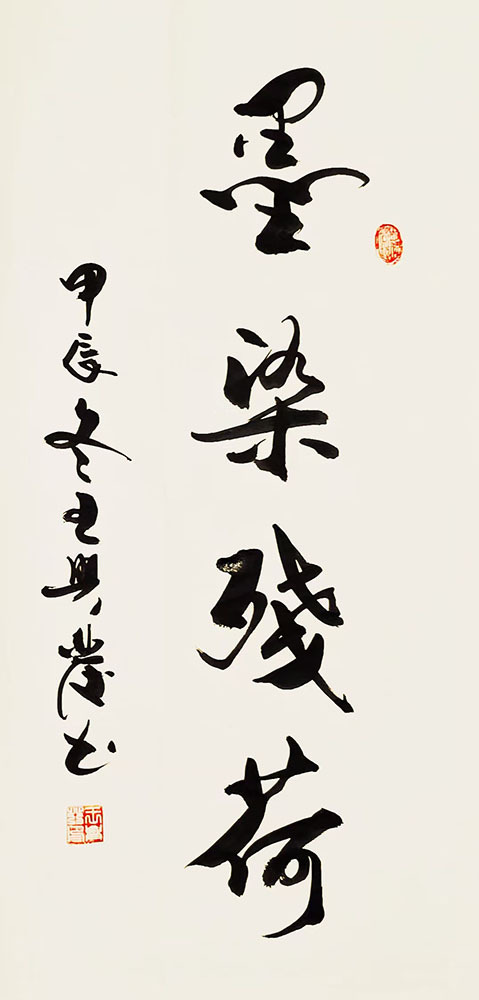 墨染殘荷
甲辰冬王興书